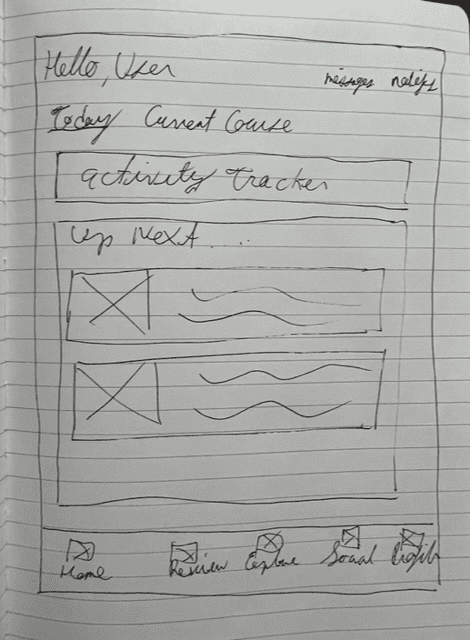 Hello, User
messages notifs
Today Current Course
activity tracker
Up Next....
Home Review Explore Social Profile